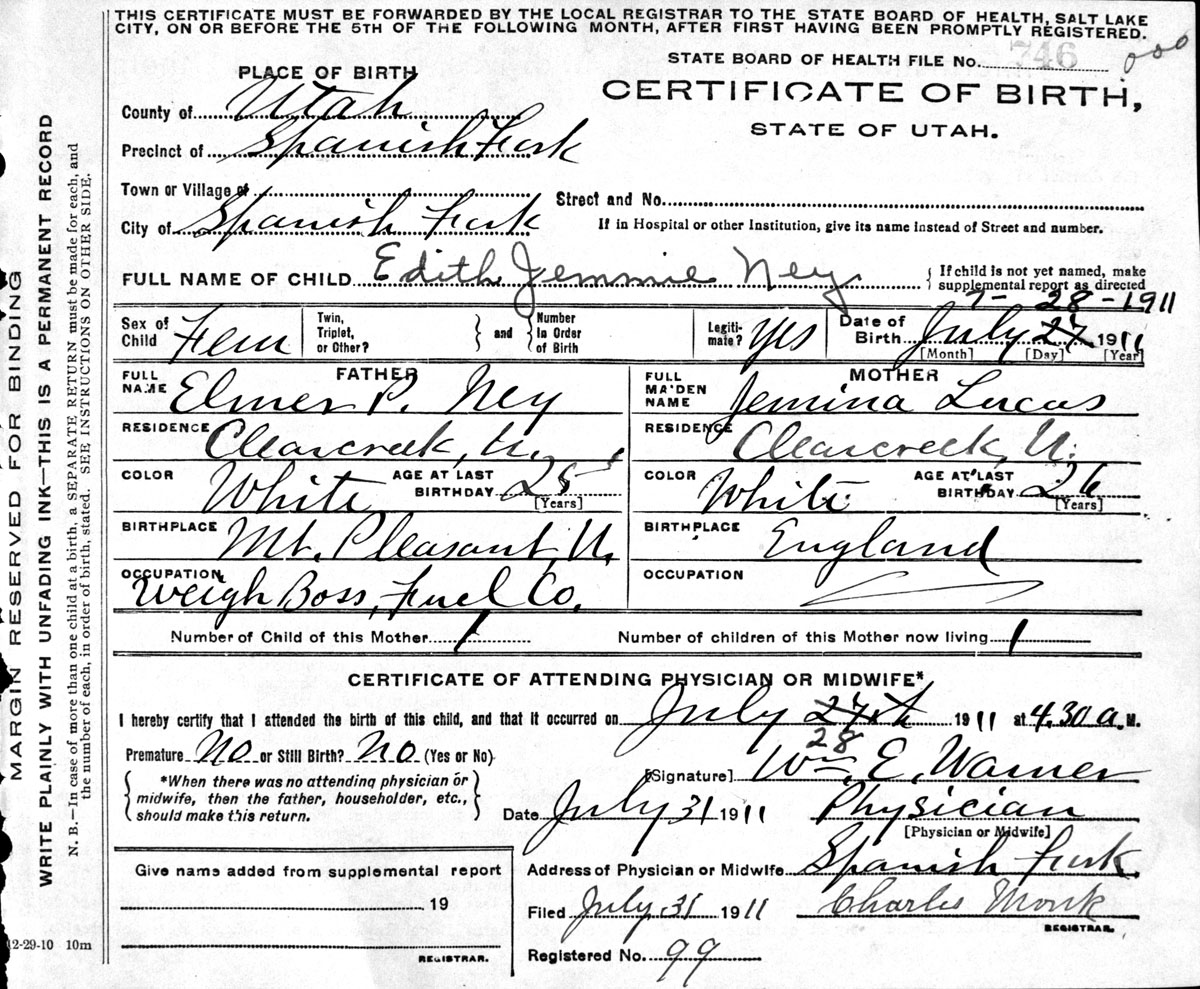 THIS CERTIFICATE MUST BE FORWARDED BY THE LOCAL REGISTRAR TO THE STATE BOARD OF HEALTH, SALT LAKE
CITY, ON OR BEFORE THE 5TH OF THE FOLLOWING MONTH, AFTER FIRST HAVING BEEN PROMPTLY REGISTERED.
STATE BOARD OF HEALTH FILE No. 746
PLACE OF BIRTH
CERTIFICATE OF BIRTH,
STATE OF UTAH.
County of Utah
Precinct of Spanish Fork
Town or Village of
Street and No.
City of Spanish Fork
If in Hospital or other Institution, give its name instead of Street and number.
FULL NAME OF CHILD Edith Jemmie Ney
If child is not yet named, make
supplemental report as directed
7-28-1911
Sex of Child Fem
Twin, Triplet, or Other?
and
Number in Order of Birth
Legiti-mate? Yes
Date of Birth July 27 1911
[Month] [Day] [Year]
FATHER
FULL NAME Elmer P. Ney
RESIDENCE Clearcreek, U.
COLOR White AGE AT LAST BIRTHDAY 25 [Years]
BIRTHPLACE Mt. Pleasant, U.
OCCUPATION Weigh Boss, Fuel Co.
MOTHER
FULL MAIDEN NAME Jemina Lucas
RESIDENCE Clearcreek, U.
COLOR White AGE AT LAST BIRTHDAY 26 [Years]
BIRTHPLACE England
OCCUPATION
Number of Child of this Mother 1
Number of children of this Mother now living 1
CERTIFICATE OF ATTENDING PHYSICIAN OR MIDWIFE*
I hereby certify that I attended the birth of this child, and that it occurred on July 27th 1911 at 4.30 a. M.
28
Premature No or Still Birth? No (Yes or No)
[Signature] Wm. E. Warner
*When there was no attending physician or
midwife, then the father, householder, etc.,
should make this return.
Date July 31 1911 Physician
[Physician or Midwife]
Address of Physician or Midwife Spanish Fork.
Filed July 31 1911 Charles Monk
REGISTRAR.
Registered No. 99
Give name added from supplemental report
19
REGISTRAR.
12-29-10 10m
MARGIN RESERVED FOR BINDING
WRITE PLAINLY WITH UNFADING INK—THIS IS A PERMANENT RECORD
N. B.—In case of more than one child at a birth, a SEPARATE RETURN must be made for each, and
the number of each, in order of birth, stated. SEE INSTRUCTIONS ON OTHER SIDE.